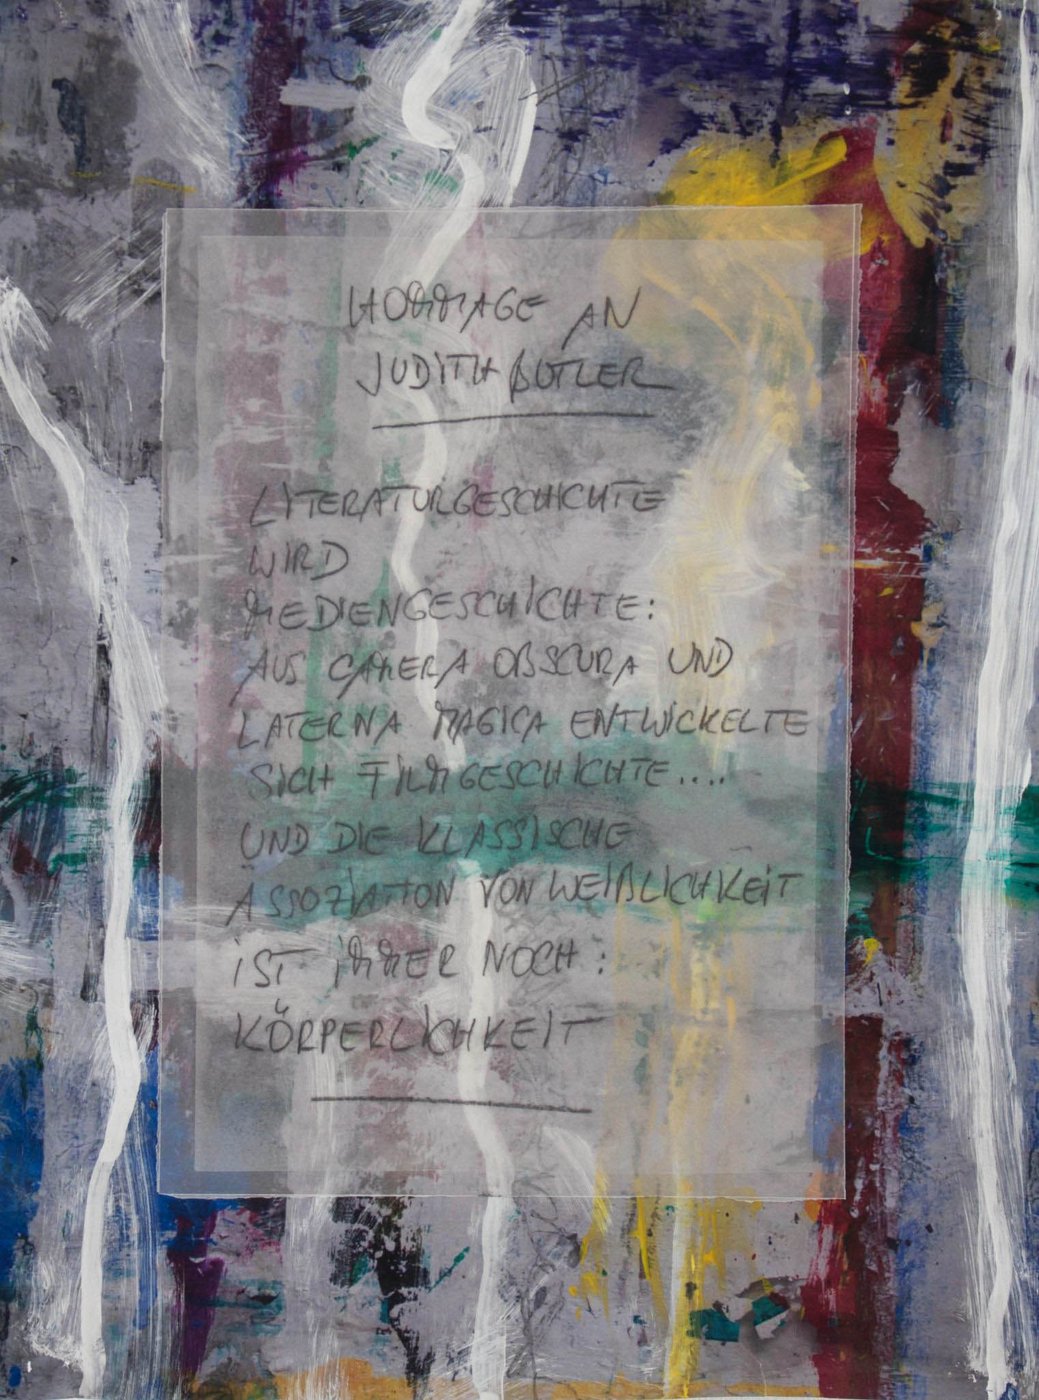 HOMMAGE AN
JUDITH BUTLER
LITERATURGESCHICHTE
WIRD
MEDIENGESCHICHTE:
AUS CAMERA OBSCURA UND
LATERNA MAGICA ENTWICKELTE
SICH FILMGESCHICHTE....
UND DIE KLASSISCHE
ASSOZIATION VON WEIBLICHKEIT
IST IMMER NOCH:
KÖRPERLICHKEIT